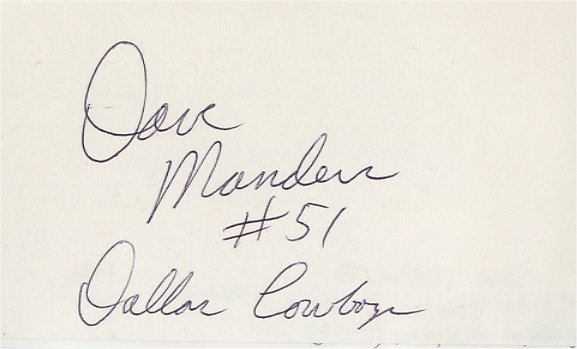 Dave
Manders
#51
Dallas Cowboys